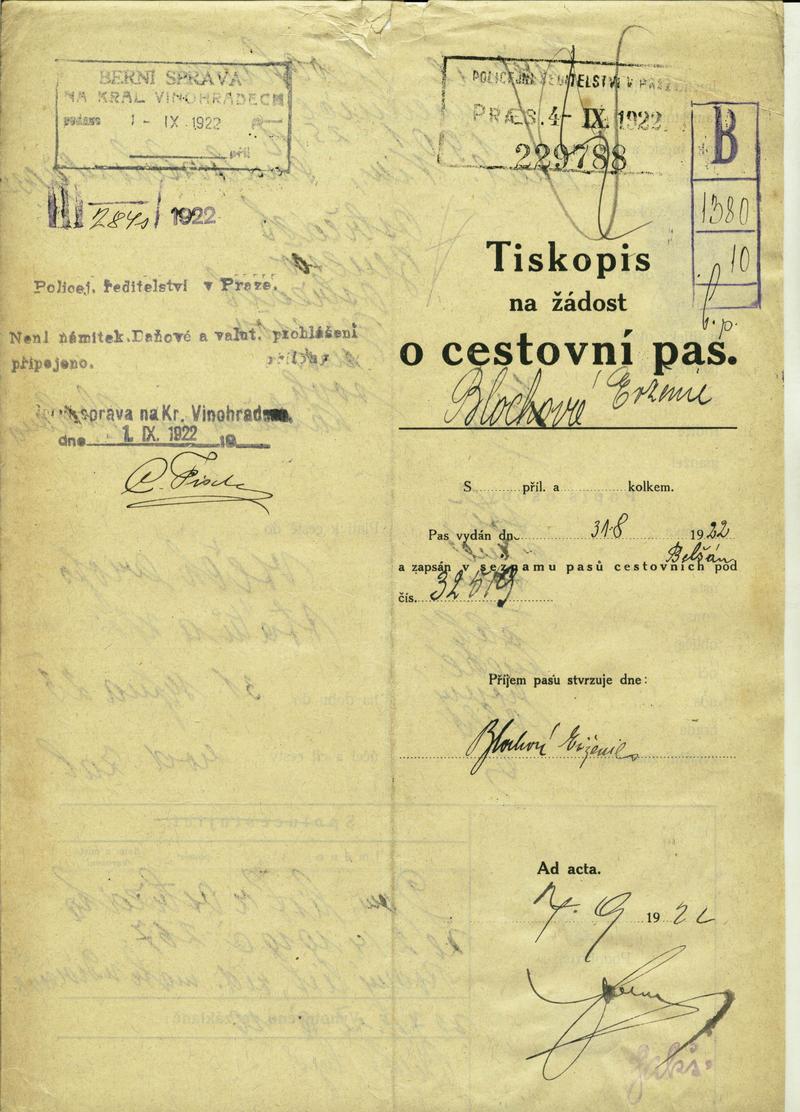 BERNÍ SPRÁVA
NA KRÁL. VINOHRADECH
podáno 1 - IX. 1922
příl.
284 1922
Policej. ředitelství v Praze.
Není námitek. Daňové a valut. prohlášení
připojeno.
správa na Kr. Vinohradech
dne 1. IX. 1922 19
POLICEJNÍ ŘEDITELSTVÍ V PRAZE
PRAES. 4- IX. 1922
229788
B
1380
10
Tiskopis
na žádost
o cestovní pas.
Blochové Evženie
S příl. a kolkem.
Pas vydán dn. 318 1922
a zapsán v seznamu pasů cestovních pod
čís. 32
Příjem pasu stvrzuje dne:
Blochová Evženie
Ad acta.
7. 9 1922